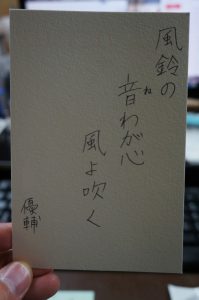 風鈴の
音わが心
ね
風よ吹く
優輔